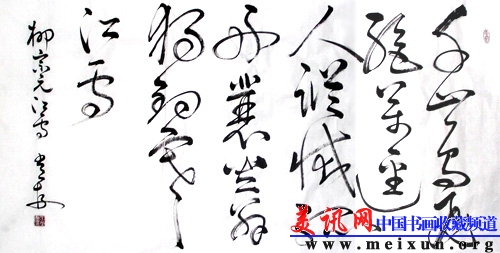 千山鳥飛
絕萬逕
人蹤滅孤
舟蓑笠翁
獨釣寒
江雪
柳宗元江雪
美讯网 中国书画收藏频道
www.meixun.org